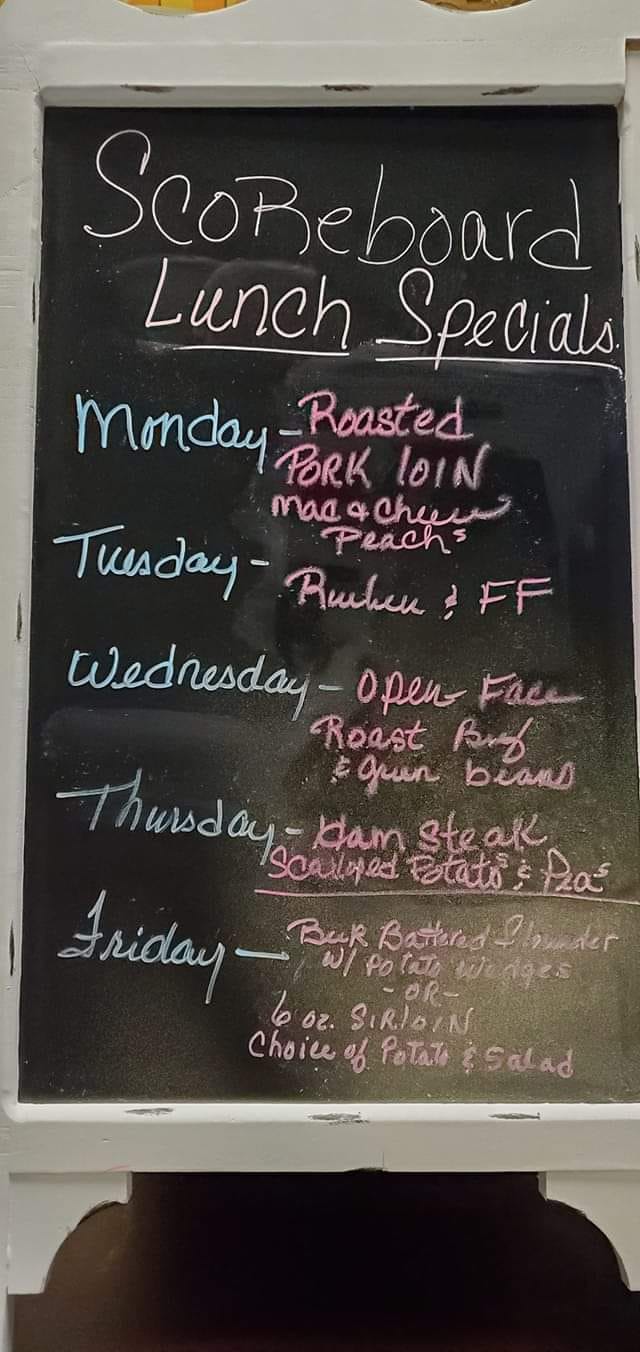 ScoReboard
Lunch Specials
Monday - Roasted
PORK lOIN
Mac & Cheese
Peachs
Tuesday -
Rueben & FF
Wednesday - Open Face
Roast Beef
& green beans
Thursday - Ham Steak
Scalloped Potatos & Peas
Friday - Beer Battered Flounder
W/ Potato Wedges
- OR -
6 oz. SIRlOIN
Choice of Potato & Salad